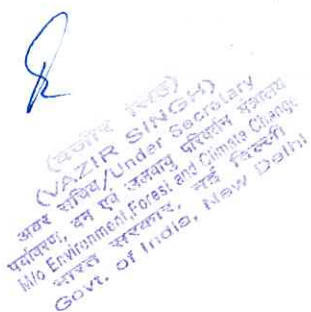 (वज़ीर सिंह)
(VAZIR SINGH)
अवर सचिव/Under Secretary
पर्यावरण, वन एवं जलवायु परिवर्तन मंत्रालय
M/o Environment, Forest and Climate Change
भारत सरकार, नई दिल्ली
Govt. of India, New Delhi